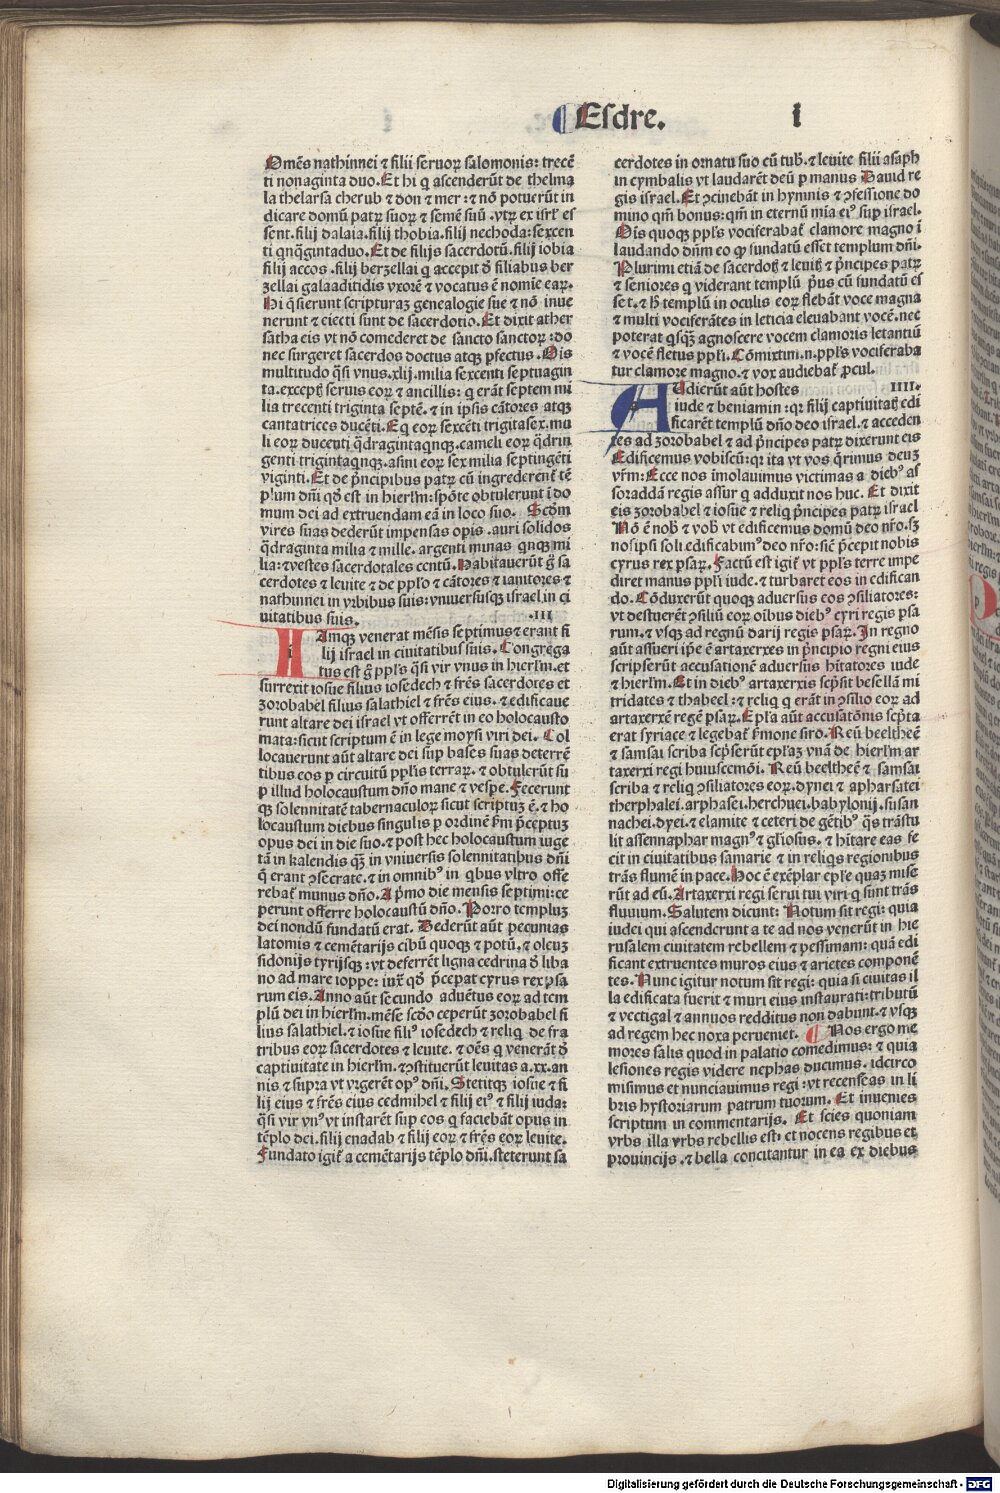 Esdre. i
Omẽs nathinnei ⁊ filii seruoꝝ salomonis: trecẽ
ti nonaginta duo. Et hi q̃ ascenderũt de thelma
la thelarsa cherub ⁊ don ⁊ mer: ⁊ nõ potuerũt in
dicare domũ patꝝ suoꝝ ⁊ semẽ suũ. vtꝝ ex isrl̃ es
sent. filij dalaia. filij thobia. filij nechoda: sexcen
ti qnq̃gintaduo. Et de filijs sacerdotũ. filij iobia
filij accos. filij berzellai q accepit đ filiabus ber
zellai galaaditidis vxorẽ ⁊ vocatus ẽ nomie eaꝝ.
Hi q̃sierunt scripturaꝫ genealogie sue ⁊ nõ inue
nerunt ⁊ eiecti sunt de sacerdotio. Et dixit ather
satha eis vt nõ comederet de sancto sanctoꝝ: do
nec surgeret sacerdos doctus atqꝫ pfectus. Ois
multitudo q̃si vnus. xlij. milia sexcenti septuagin
ta. exceptꝭ seruis eoꝝ ⁊ ancillis: q erãt septem mi
lia trecenti triginta septẽ. ⁊ in ipsis cãtores atqꝫ
cantatrices ducẽti. Eq̃ eoꝝ sexcẽti trigitasex. mu
li eoꝝ ducenti q̃dragintaqnqꝫ. cameli eoꝝ q̃drin
genti trigintaqnqꝫ. asini eoꝝ sex milia septingẽti
viginti. Et de p̃ncipibus patꝝ cũ ingrederent̃ tẽ
plum dñi qđ est in hierl̃m: spõte obtulerunt ĩ do
mum dei ad extruendam eã in loco suo. Scđm
vires suas dederũt impensas opis. auri solidos
q̃draginta milia ⁊ mille. argenti minas qnqꝫ mi
lia: ⁊ vestes sacerdotales centũ. Habitauerũt g̃ sa
cerdotes ⁊ leuite ⁊ de pplo ⁊ cãtores ⁊ ianitores ⁊
nathinnei in vrbibus suis: vniuersusqꝫ israel in ci
uitatibus suis. .III
Iamqꝫ venerat mẽsis septimus ⁊ erant fi
lij israel in ciuitatibus suis. Congrega
tus est g̃ ppl̃s q̃si vir vnus in hierl̃m. et
surrexit iosue filius iosedech ⁊ frẽs sacerdotes et
zorobabel filius salathiel ⁊ frẽs eius. ⁊ edificaue
runt altare dei israel vt offerrẽt in eo holocausto
mata: sicut scriptum ẽ in lege moysi viri dei. Col
locauerunt aũt altare dei sup bases suas deterrẽ
tibus eos p circuitũ ppl̃is terraꝝ. ⁊ obtulerũt su
p illud holocaustum dño mane ⁊ vespe. Fecerunt
qꝫ solennitatẽ tabernaculoꝝ sicut scriptuꝫ ẽ. ⁊ ho
locaustum diebus singulis p ordinẽ ẜm p̃ceptuꝫ
opus dei in die suo. ⁊ post hec holocaustum iuge
tã in kalendis q̃ꝫ in vniuersis solennitatibus dñi
q̃ erant ꝯsecrate. ⁊ in omnibꝰ in qbus vltro offe
rebat̃ munus dño. A p̃mo die mensis septimi: ce
perunt offerre holocaustũ dño. Porro templuꝫ
dei nondũ fundatũ erat. Dederũt aũt pecunias
latomis ⁊ cemẽtarijs cibũ quoqꝫ ⁊ potũ. ⁊ oleuꝫ
sidonijs tyrijsqꝫ: vt deferrẽt ligna cedrina đ liba
no ad mare ioppe: iux̃ qđ p̃cepat cyrus rex psa
rum eis. Anno aũt secundo aduẽtus eoꝝ ad tem
plũ dei in hierl̃m. mẽse scđo ceperũt zorobabel fi
lius salathiel. ⁊ iosue filiꝰ iosedech ⁊ reliq̃ de fra
tribus eoꝝ sacerdotes ⁊ leuite. ⁊ oẽs q venerãt đ
captiuitate in hierl̃m. ⁊ ꝯstituerũt leuitas a. xx. an
nis ⁊ supra vt vrgerẽt opꝰ dñi. Stetitqꝫ iosue ⁊ fi
lij eius ⁊ frẽs eius cedmihel ⁊ filij eiꝰ ⁊ filij iuda:
q̃si vir vnꝰ vt instarẽt sup eos q faciebãt opus in
tẽplo dei. filij enadab ⁊ filij eoꝝ ⁊ frẽs eoꝝ leuite.
Fundato igit̃ a cemẽtarijs tẽplo dñi. steterunt sa
cerdotes in ornatu suo cũ tub̃. ⁊ leuite filii asaph
in cymbalis vt laudarẽt deũ p manus Dauid re
gis israel. Et ꝯcinebãt in hymnis ⁊ ꝯfessione do
mino qm̃ bonus: qm̃ in eternũ mĩa eiꝰ sup israel.
Ois quoqꝫ ppl̃s vociferabat̃ clamore magno ĩ
laudando dñm eo ꝙ fundatũ esset templum dñi.
Plurimi etiã de sacerdotꝭ ⁊ leuitꝭ ⁊ p̃ncipes patꝝ
⁊ seniores q viderant templũ p̃us cũ fundatũ es
set. ⁊ h̃ templũ in oculis eoꝝ flebãt voce magna
⁊ multi vociferãtes in leticia eleuabant vocẽ. nec
poterat qsqꝫ̃ agnoscere vocem clamoris letantiũ
⁊ vocẽ fletus ppl̃i. Cõmixtim. n. ppl̃s vociferaba
tur clamore magno. ⁊ vox audiebat̃ procul.
AUdierũt aũt hostes IIII.
iude ⁊ beniamin: qꝛ filij captiuitatꝭ edi
ficarẽt templũ dño deo israel. ⁊ acceden
tes ad zorobabel ⁊ ad p̃ncipes patꝝ dixerunt eis
Edificemus vobiscũ: qꝛ ita vt vos q̃rimus deuꝫ
vr̃m: Ecce nos ĩmolauimus victimas a diebꝰ as
soraddã regis assur q adduxit nos huc. Et dixit
eis zorobabel ⁊ iosue ⁊ reliq p̃ncipes patꝝ israel
Nõ ẽ nob̃ ⁊ vob̃ vt edificemus domũ deo nr̃o. sꝫ
nosipsi soli edificabimꝰ deo nr̃o: sic̃ p̃cepit nobis
cyrus rex psaꝝ. Factũ est igit̃ vt ppl̃s terre impe
diret manus ppl̃i iude. ⁊ turbaret eos in edifican
do. Cõduxerũt quoqꝫ aduersus eos ꝯsiliatores:
vt destruerẽt ꝯsiliũ eoꝝ oĩbus diebꝰ cyri regis psa
rum. ⁊ vsqꝫ ad regnũ darij regis psaꝝ. In regno
aũt assueri ip̃e ẽ artaxerxes in p̃ncipio regni eius
scripserũt accusationẽ aduersus hĩtatores iude
⁊ hierl̃m. Et in diebꝰ artaxerxis scp̃sit besellã mi
tridates ⁊ thabeel: ⁊ reliq q erãt in ꝯsilio eoꝝ ad
artaxerxẽ regẽ psaꝝ. Epl̃a aũt accusatõnis scp̃ta
erat syriace ⁊ legebat̃ ẜmone siro. Reũ beeltheẽ
⁊ samsai scriba scp̃serũt epl̃aꝫ vnã de hierl̃m ar
taxerxi regi huiuscemõi. Reũ beeltheẽ ⁊ samsai
scriba ⁊ reliq ꝯsiliatores eoꝝ. dynei ⁊ apharsatei
therphalei. arphasei. herchuei. babylonij. susan
nachei. dyei. ⁊ elamite ⁊ ceteri de gẽtibꝰ q̃s trãstu
lit assennaphar magnꝰ ⁊ gl̃iosus. ⁊ hĩtare eas fe
cit in ciuitatibus samarie ⁊ in reliqs regionibus
trãs flumẽ in pace. Hoc ẽ exẽplar epl̃e quaꝫ mise
rũt ad eũ. Artaxerxi regi serui tui viri q sunt trãs
fluuium. Salutem dicunt: Notum sit regi: quia
iudei qui ascenderunt a te ad nos venerũt in hie
rusalem ciuitatem rebellem ⁊ pessimam: quã edi
ficant extruentes muros eius ⁊ arietes componẽ
tes. Nunc igitur notum sit regi: quia si ciuitas il
la edificata fuerit ⁊ muri eius instaurati: tributũ
⁊ vectigal ⁊ annuos redditus non dabunt. ⁊ vsqꝫ
ad regem hec noxa perueniet. Nos ergo me
mores salis quod in palatio comedimus: ⁊ quia
lesiones regis videre nephas ducimus. idcirco
misimus et nunciauimus regi: vt recenseas in li
bris hystoriarum patrum tuorum. Et inuenies
scriptum in commentarijs. Et scies quoniam
vrbs illa vrbs rebellis est: et nocens regibus et
prouincijs. ⁊ bella concitantur in ea ex diebus
Digitalisierung gefördert durch die Deutsche Forschungsgemeinschaft - DFG